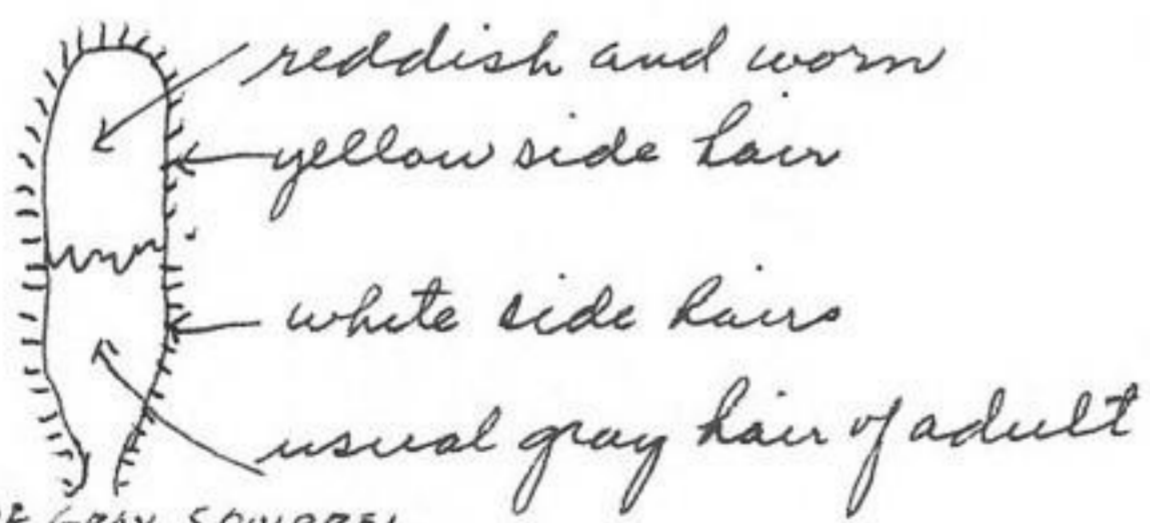 reddish and worn
yellow side hair
white side hairs
usual gray hair of adult
GRAY SQUIRREL